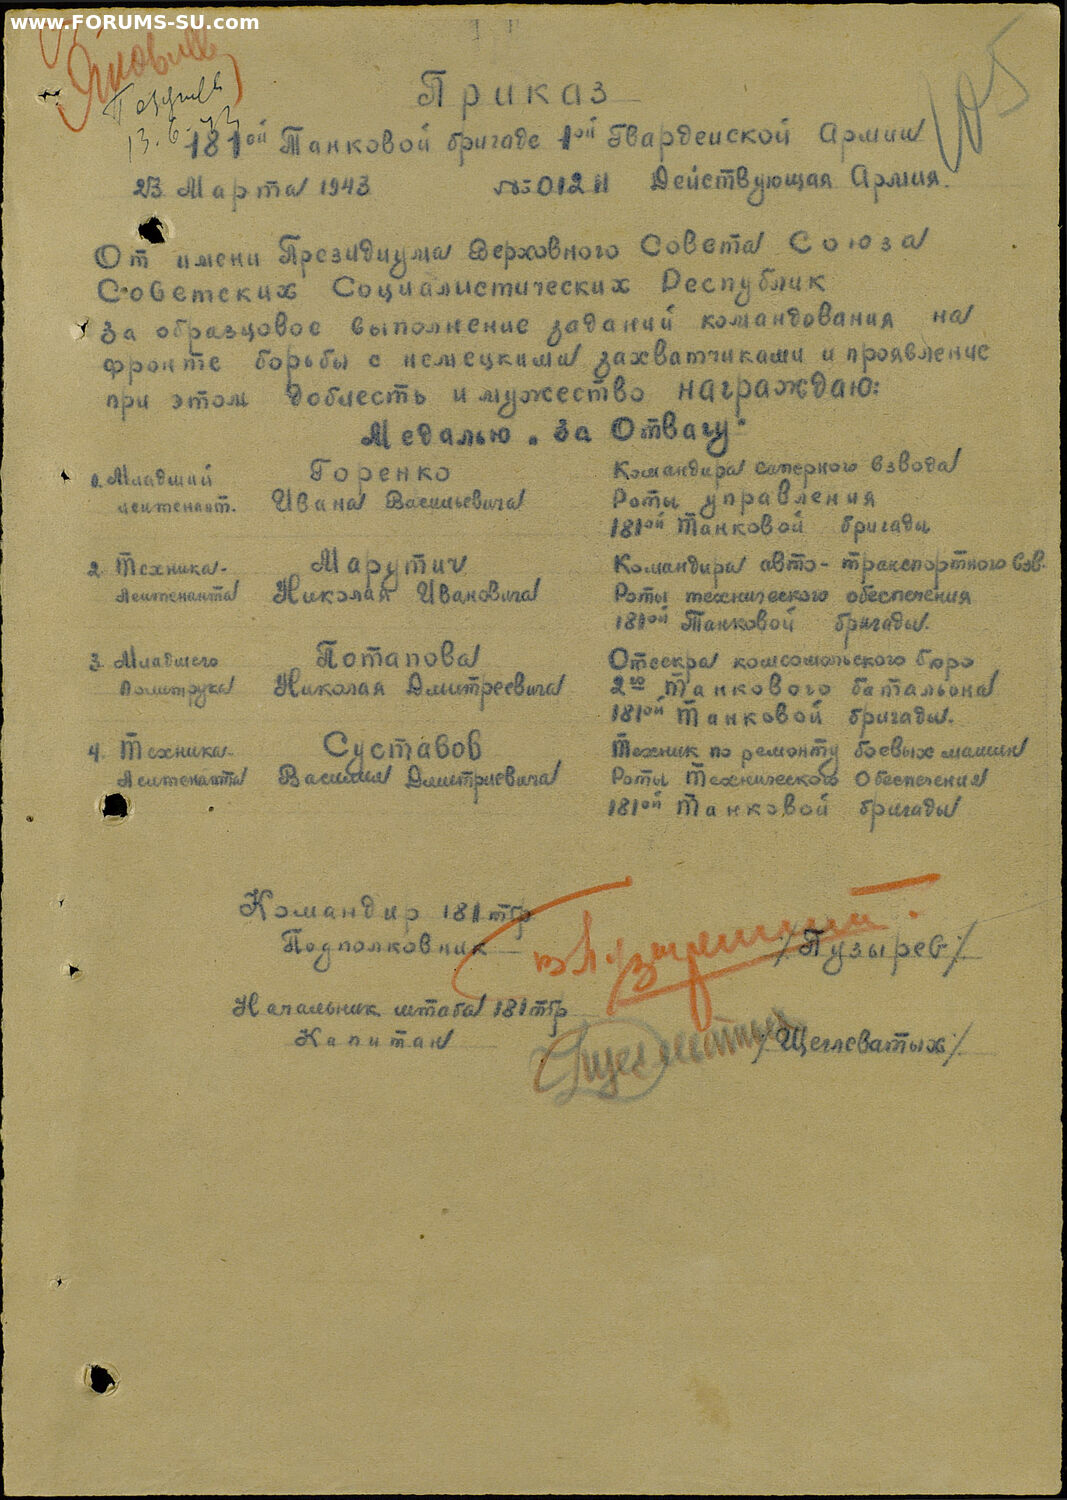 www.FORUMS-SU.com
13.6.43
105
Приказ
181ой Танковой бригаде 1ой Гвардейской Армии
23 Марта 1943 №012/н Действующая Армия.
От имени Президиума Верховного Совета Союза
Советских Социалистических Республик
за образцовое выполнение заданий командования на
фронте борьбы с немецкими захватчиками и проявление
при этом доблесть и мужество награждаю:
Медалью „За Отвагу"
1. Младший Горенко Командира саперного взвода
лейтенант. Ивана Васильевича Роты управления
181ой Танковой бригады
2. Техника- Марутич Командира авто-транспортного взв.
Лейтенанта Николая Ивановича Роты технического обеспечения
181ой Танковой бригады.
3. Младшего Потапова Отсекра комсомольского бюро
Политрука Николая Дмитреевича 2го Танкового батальона
181ой Танковой бригады.
4. Техника- Суставов Техник по ремонту боевых машин
Лейтенанта Василия Дмитриевича Роты Технического Обеспечения
181ой Танковой бригады
Командир 181тбр
Подполковник /Пузырев/
Начальник штаба 181тбр
Капитан /Щеглеватых/